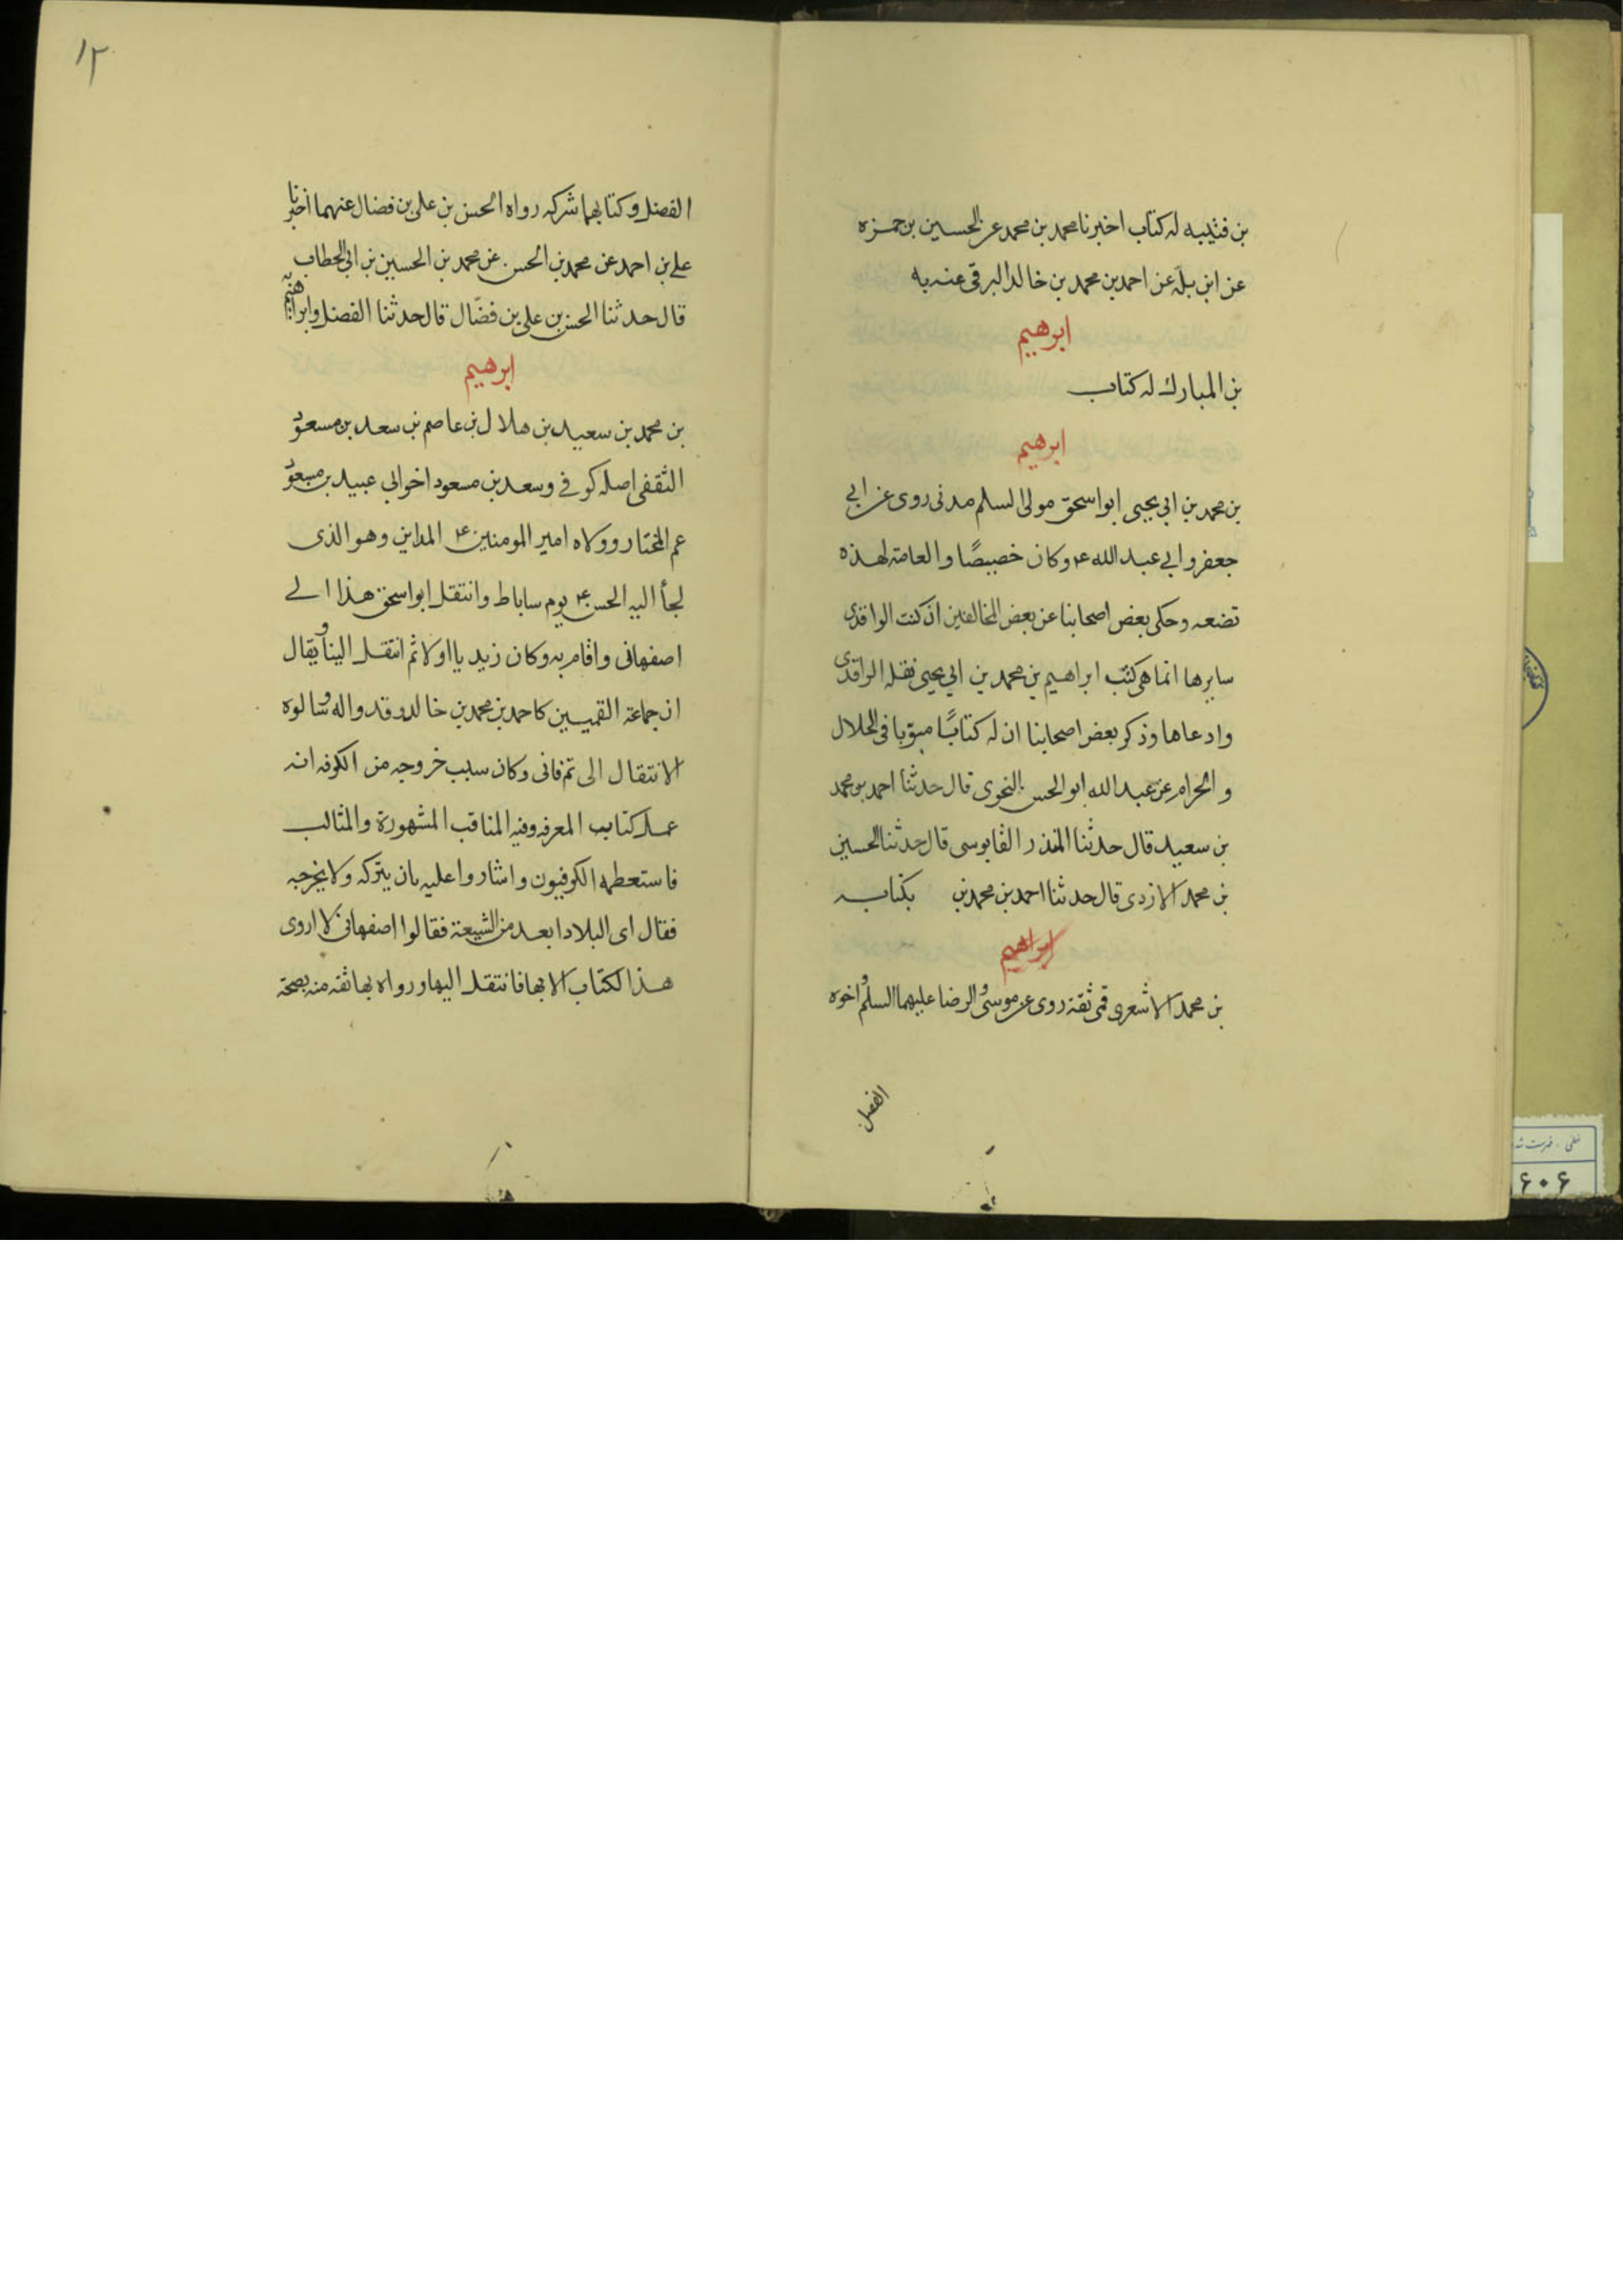 بن قتيبه له كتاب اخبرنا محمد بن محمد عن الحسين بن حمزه
عن ابن بطه عن احمد بن محمد بن خالد البرقى عنه به
ابرهيم
بن المبارك له كتاب
ابرهيم
بن محمد بن ابي يحيى ابو اسحق مولى السلم مدنى روى عن ابي
جعفر و ابي عبد الله ع وكان خصيصًا والعامة لهذه
تضعه وحكى بعض اصحابنا عن بعض المخالفين ان كتب الواقدى
سايرها انما هى كتب ابراهيم بن محمد بن ابي يحيى نقله الواقدى
وادعاها وذكر بعض اصحابنا ان له كتابًا مبوبا فى الحلال
والحرام عن عبد الله ابو الحسن النحوى قال حدثنا احمد بن محمد
بن سعيد قال حدثنا المنذر القابوسى قال حدثنا الحسين
بن محمد الازدى قال حدثنا احمد بن محمد بن بكتابه
ابراهيم
بن محمد الاشعرى قمى ثقة روى عن موسى والرضا عليهما السلم و اخوه
الفضل
١٢
الفضل وكتابهما شركه رواه الحسن بن على بن فضال عنهما اخبرنا
على بن احمد عن محمد بن الحسن عن محمد بن الحسين بن ابى الخطاب
قال حدثنا الحسن بن على بن فضّال قال حدثنا الفضل وابراهيم به
ابرهيم
بن محمد بن سعيد بن هلال بن عاصم بن سعد بن مسعود
الثقفى اصله كوفى وسعد بن مسعود اخو ابي عبيد بن مسعود
عم المختار وولاه امير المومنين ع المداين وهو الذى
لجأ اليه الحسن ع يوم ساباط وانتقل ابو اسحق هذا الى
اصفهانى واقام به وكان زيديا اولا ثم انتقل الينا ويقال
ان جماعة القميين كاحمد بن محمد بن خالد وقدوا له وسالوه
الانتقال الى قم فانى وكان سبب خروجه من الكوفه انه
عمل كتاب المعرفه وفيه المناقب المشهورة والمثالب
فاستعظمه الكوفيون واشاروا عليه بان يتركه ولا يخرجه
فقال اى البلاد ابعد من الشيعة فقالوا اصفهان لا اروى
هذا الكتاب الا بها فانتقل اليها ورواه بها ثقه منه بصحة
فهرست شد
۶۰۶